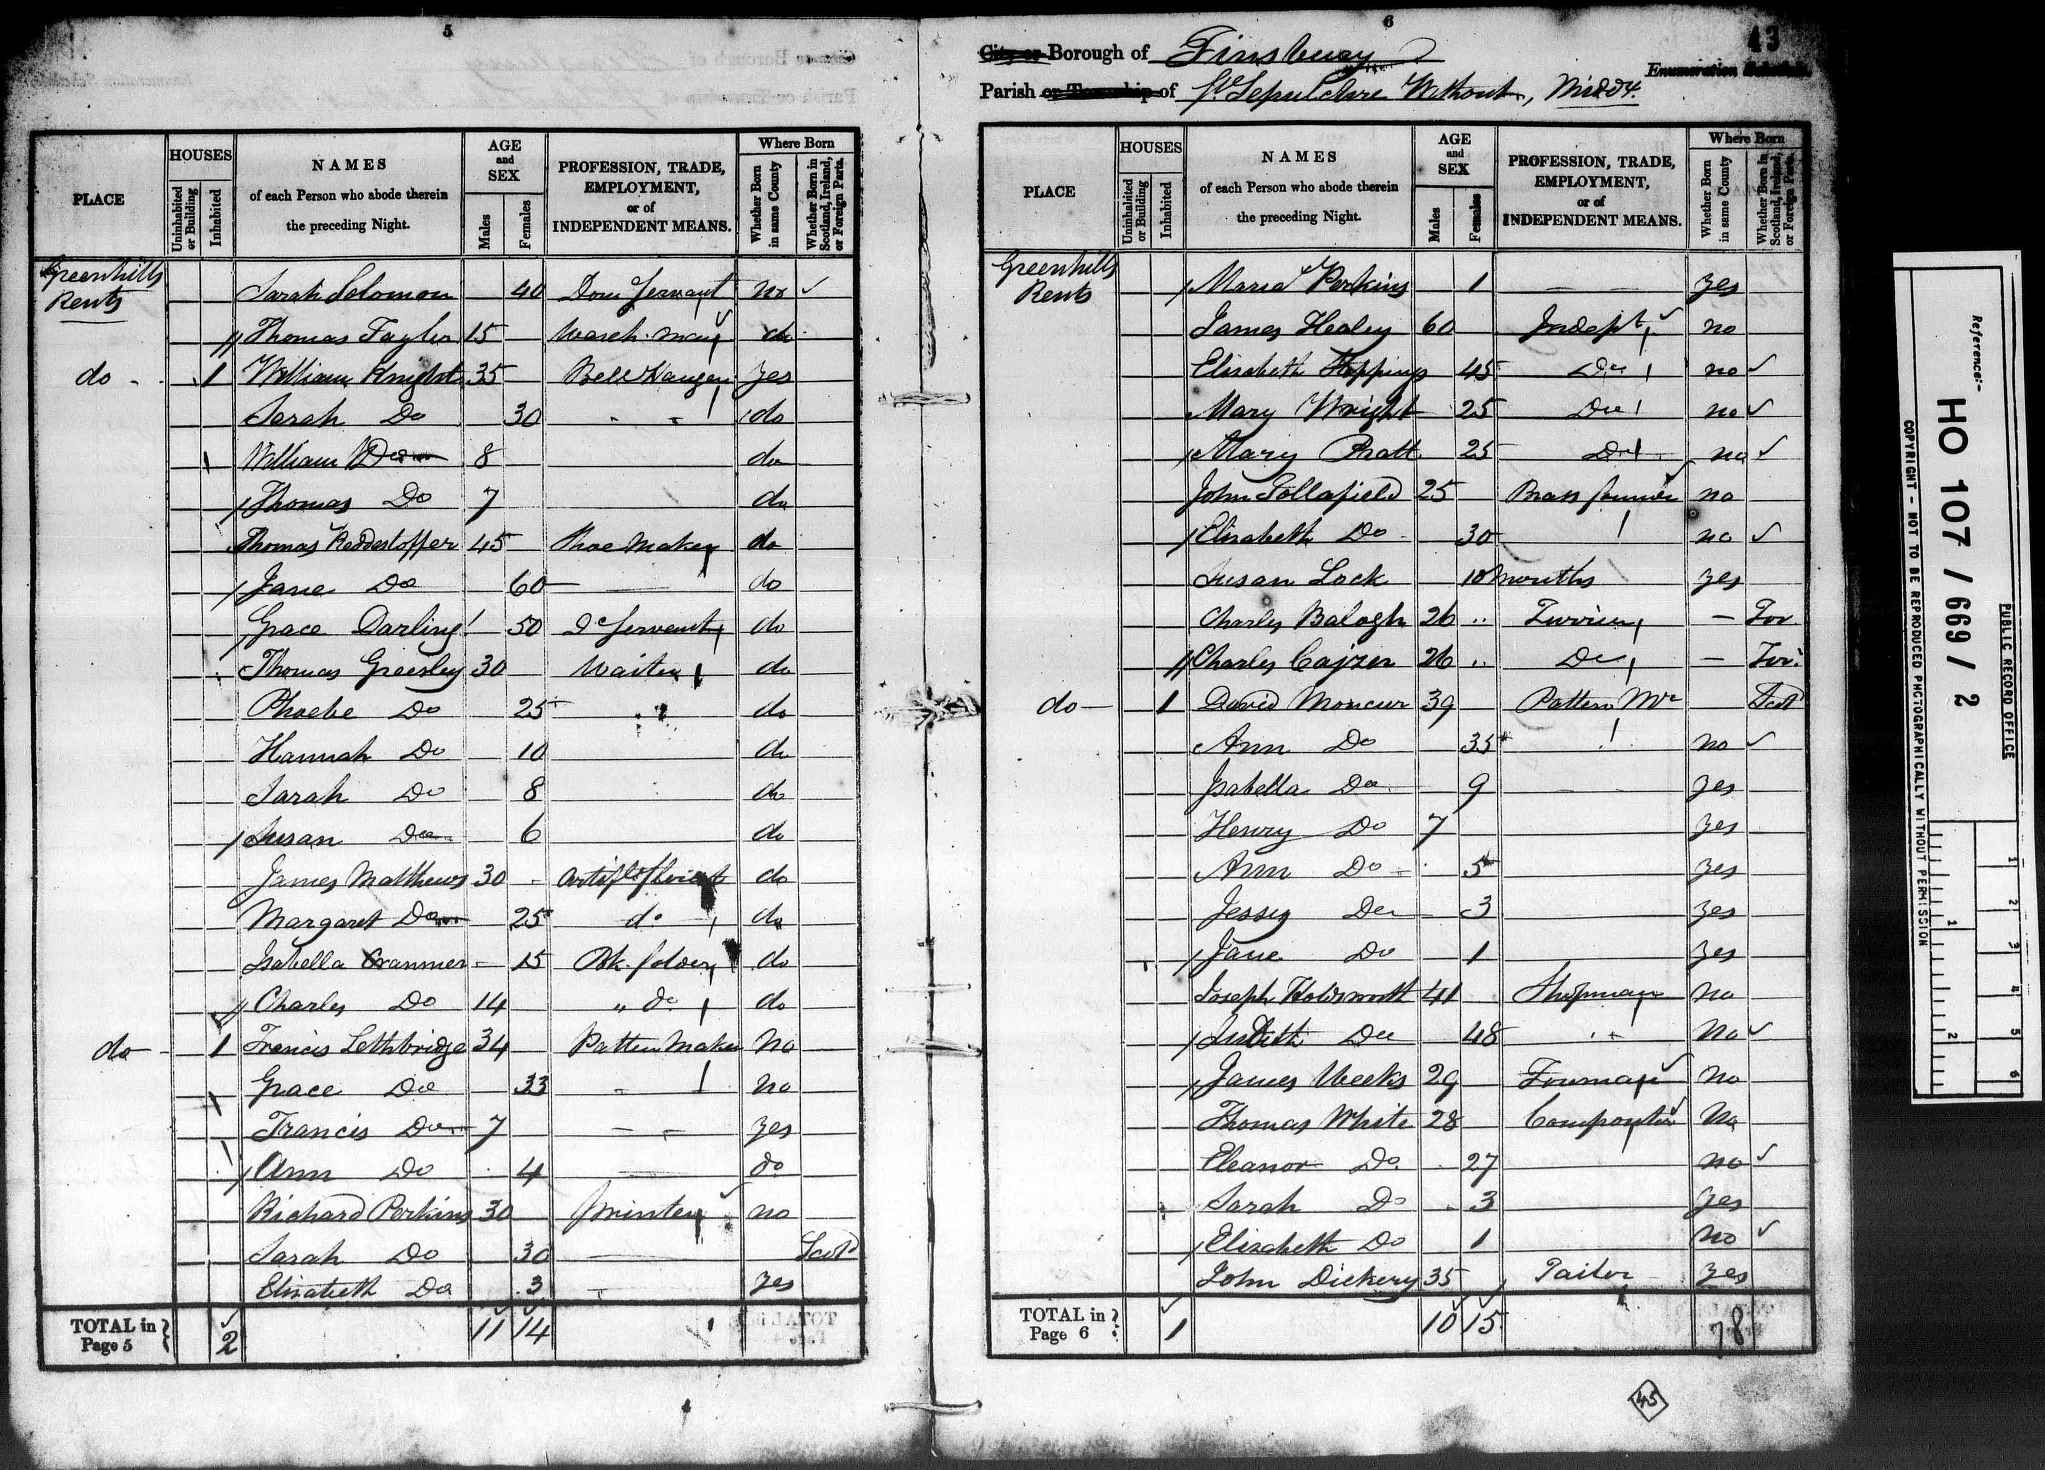 5
PLACE
HOUSES
Uninhabited or Building
Inhabited
NAMES
of each Person who abode therein
the preceding Night.
AGE
and
SEX
Males
Females
PROFESSION, TRADE,
EMPLOYMENT,
or of
INDEPENDENT MEANS.
Where Born
Whether Born in same County
Whether Born in Scotland, Ireland, or Foreign Parts.
Greenhills Sarah Solomon 40 Dom Servant no
Rents
Thomas Taylor 15 do
do 1 William Knight 35 Bell Hanger yes
Sarah Do 30 do
William Do 8 do
Thomas Do 7 do
Thomas 45 Shoe Maker do
Jane Do 60 do
Grace Darling 50 Servant do
Thomas Greesley 30 Waiter do
Phoebe Do 25 do
Hannah Do 10 do
Sarah Do 8 do
Susan Do 6 do
James Matthews 30 do
Margaret Do 25 do do
Isabella Cranmer 15 Bk. folder do
Charles Do 14 " do do
do 1 Francis Lethbridge 34 Patten Maker No
Grace Do 33 no
Francis Do 7 yes
Ann Do 4 do
Richard Perkins 30 printer no
Sarah Do 30 Scotd
Elizabeth Do 3 yes
TOTAL in
Page 5
2 11 14
6
43
City or Borough of Finsbury
Enumeration Schedule.
Parish or Township of St Sepulchre Without, Middx.
PLACE
HOUSES
Uninhabited or Building
Inhabited
NAMES
of each Person who abode therein
the preceding Night.
AGE
and
SEX
Males
Females
PROFESSION, TRADE,
EMPLOYMENT,
or of
INDEPENDENT MEANS.
Where Born
Whether Born in same County
Whether Born in Scotland, Ireland, or Foreign Parts.
Greenhills Maria Perkins 1 yes
Rents
James Healey 60 Indept no
Elizabeth Hoppings 45 Do no
Mary Wright 25 Do no
Mary Pratt 25 Do no
John Gollafield 25 Brass founder no
Elizabeth Do 30 no
Susan Lock 10 months yes
Charles Balogh 26 " Furrier – For
Charles Cajzer 26 " Do – For
do 1 David Moncur 39 Pattern Mr Scotd
Ann Do 35 no
Isabella Do 9 yes
Henry Do 7 yes
Ann Do 5 yes
Jessy Do 3 yes
Jane Do 1 yes
Joseph Holdsworth 41 Shopman no
Do 48 No
James Weeks 29 no
Thomas White 28 Compositor No
Eleanor Do 27 no
Sarah Do 3 yes
Elizabeth Do 1 no
John Dickery 35 Tailor yes
TOTAL in
Page 6
1 10 15
78
45
Reference:-
HO 107 / 669 / 2
PUBLIC RECORD OFFICE
COPYRIGHT - NOT TO BE REPRODUCED PHOTOGRAPHICALLY WITHOUT PERMISSION
1
2
3
4
5
6
1
2